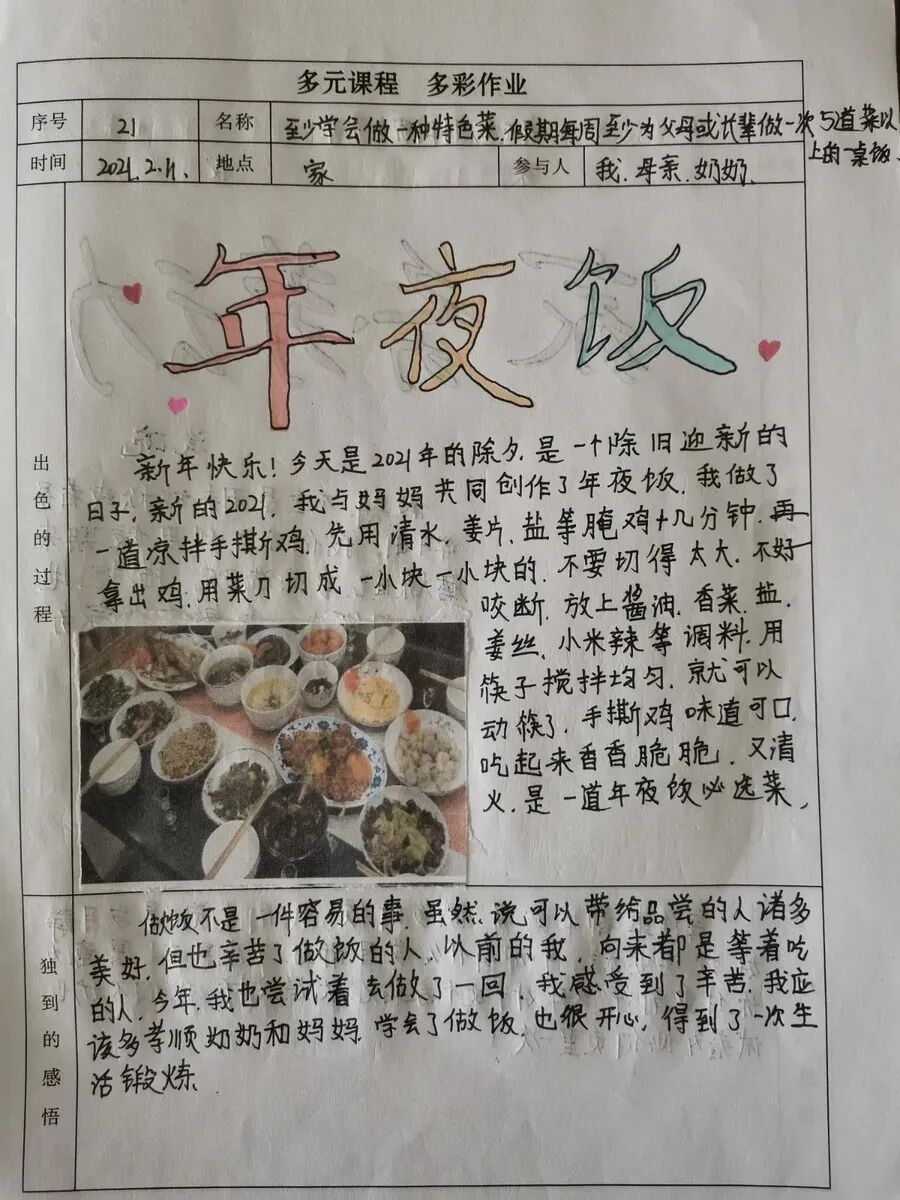 多元课程 多彩作业
序号 21 名称 至少学会做一种特色菜.假期每周至少为父母或长辈做一次5道菜以
上的一桌饭.
时间 2021.2.11. 地点 家 参与人 我.母亲.奶奶.
年夜饭
出色的过程
新年快乐!今天是2021年的除夕.是一个除旧迎新的
日子.新的2021.我与妈妈共同创作了年夜饭.我做了
一道凉拌手撕鸡.先用清水.姜片.盐等腌鸡十几分钟.再
拿出鸡.用菜刀切成一小块一小块的.不要切得太大.不好
咬断.放上酱油.香菜.盐.
姜丝.小米辣等调料.用
筷子搅拌均匀.就可以
动筷了.手撕鸡味道可口.
吃起来香香脆脆.又清
火.是一道年夜饭必选菜.
独到的感悟
做饭不是一件容易的事.虽然说可以带给品尝的人诸多
美好.但也辛苦了做饭的人.以前的我.向来都是等着吃
的人.今年.我也尝试着去做了一回.我感受到了辛苦.我应
该多孝顺奶奶和妈妈.学会了做饭.也很开心.得到了一次生
活锻炼.